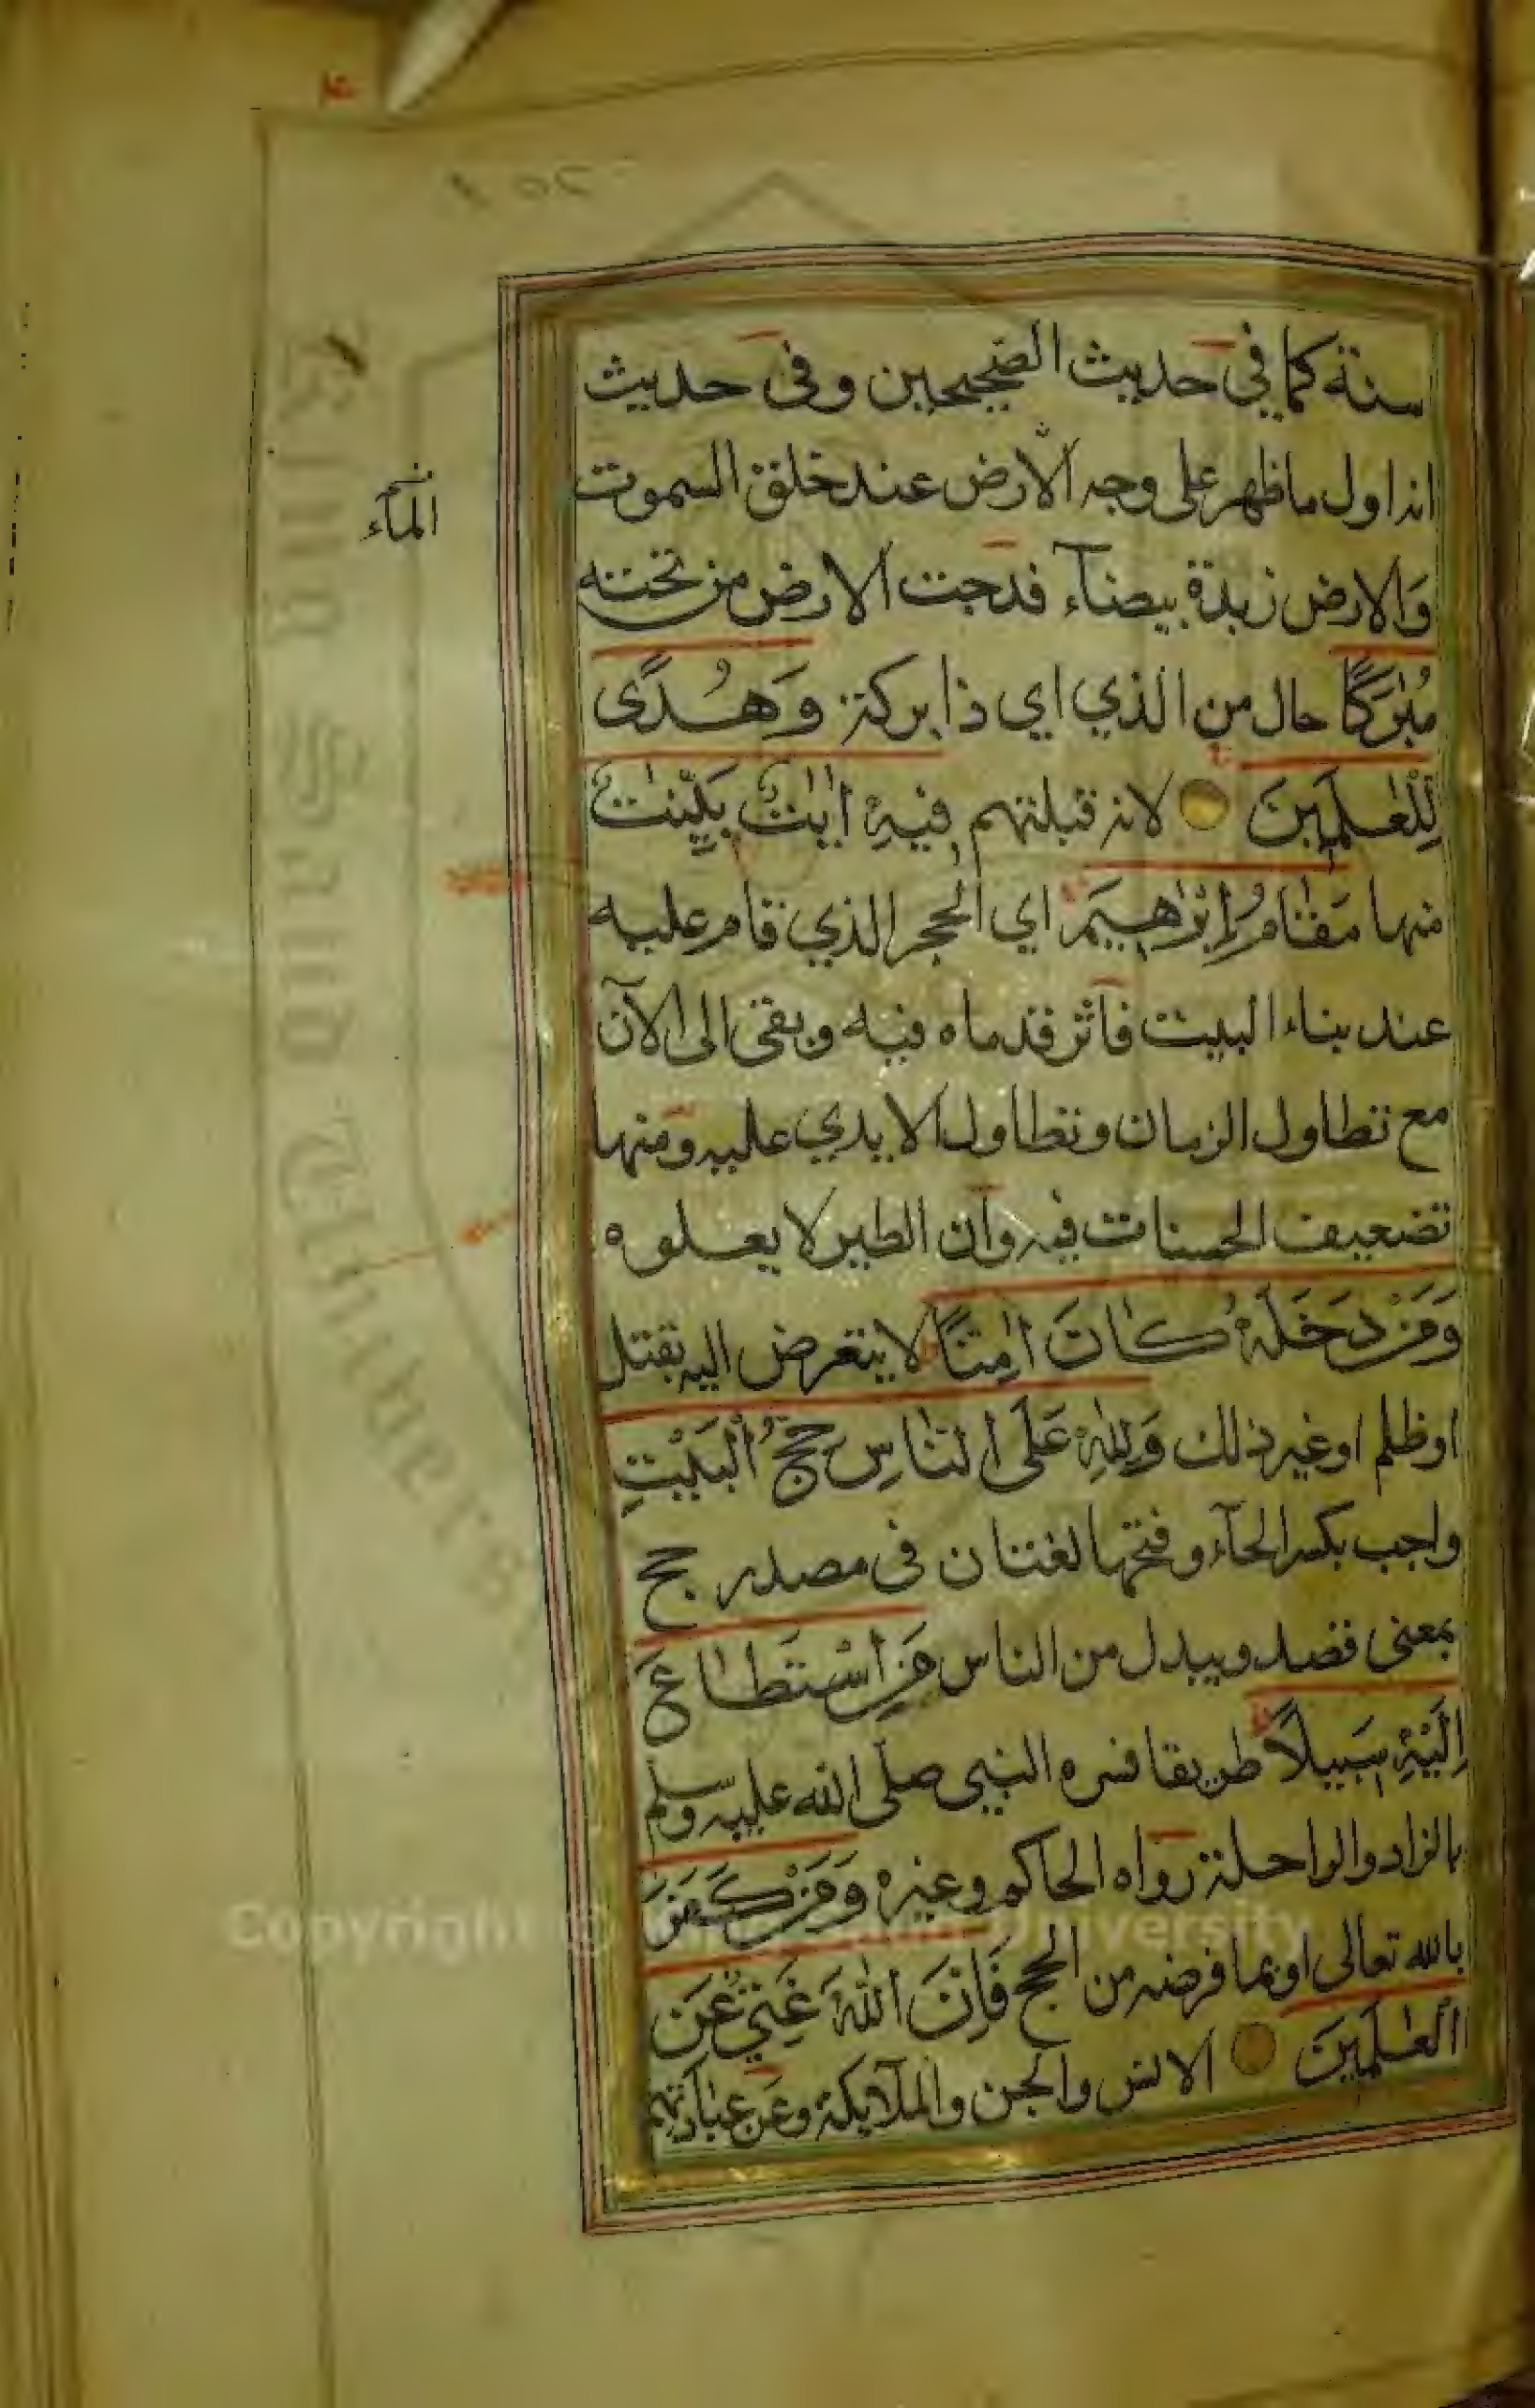 سنة كما في حديث الصحيحين وفى حديث
انه اول ما ظهر على وجه الارض عند خلق السموت
والارض زبدة بيضآء فدحت الارض من تحته
مُبٰرَكًا حال من الذي اي ذا بركة وَهُدًى
لِلْعٰلَمِينَ لانه قبلتهم فِيهِ اٰيٰتٌ بَيِّنٰتٌ
منها مَقَامُ إِبْرٰهِيمَ اي الحجر الذي قام عليه
عند بناء البيت فآثر قدماه فيه وبقى الى الآن
مع تطاول الزمان وتطاول الايدي عليه ومنها
تضعيف الحسنات فيه وان الطير لا يعلوه
وَمَنْ دَخَلَهُ كَانَ اٰمِنًا لا يتعرض اليه بقتل
او ظلم او غير ذلك وَلِلّٰهِ عَلَى النَّاسِ حِجُّ الْبَيْتِ
واجب بكسر الحآء وفتحها لغتان فى مصدر حج
بمعنى قصد ويبدل من الناس مَنِ اسْتَطَاعَ
اِلَيْهِ سَبِيلًا طريقا فسره النبي صلى الله عليه وسلم
بالزاد والراحلة رواه الحاكم وغيره وَمَنْ كَفَرَ
بالله تعالى او بما فرضه من الحج فَإِنَّ اللّٰهَ غَنِيٌّ عَنِ
الْعٰلَمِينَ الانس والجن والملآئكة وعن عبادتهم
المآء
King Saud University
Copyright © King Saud University